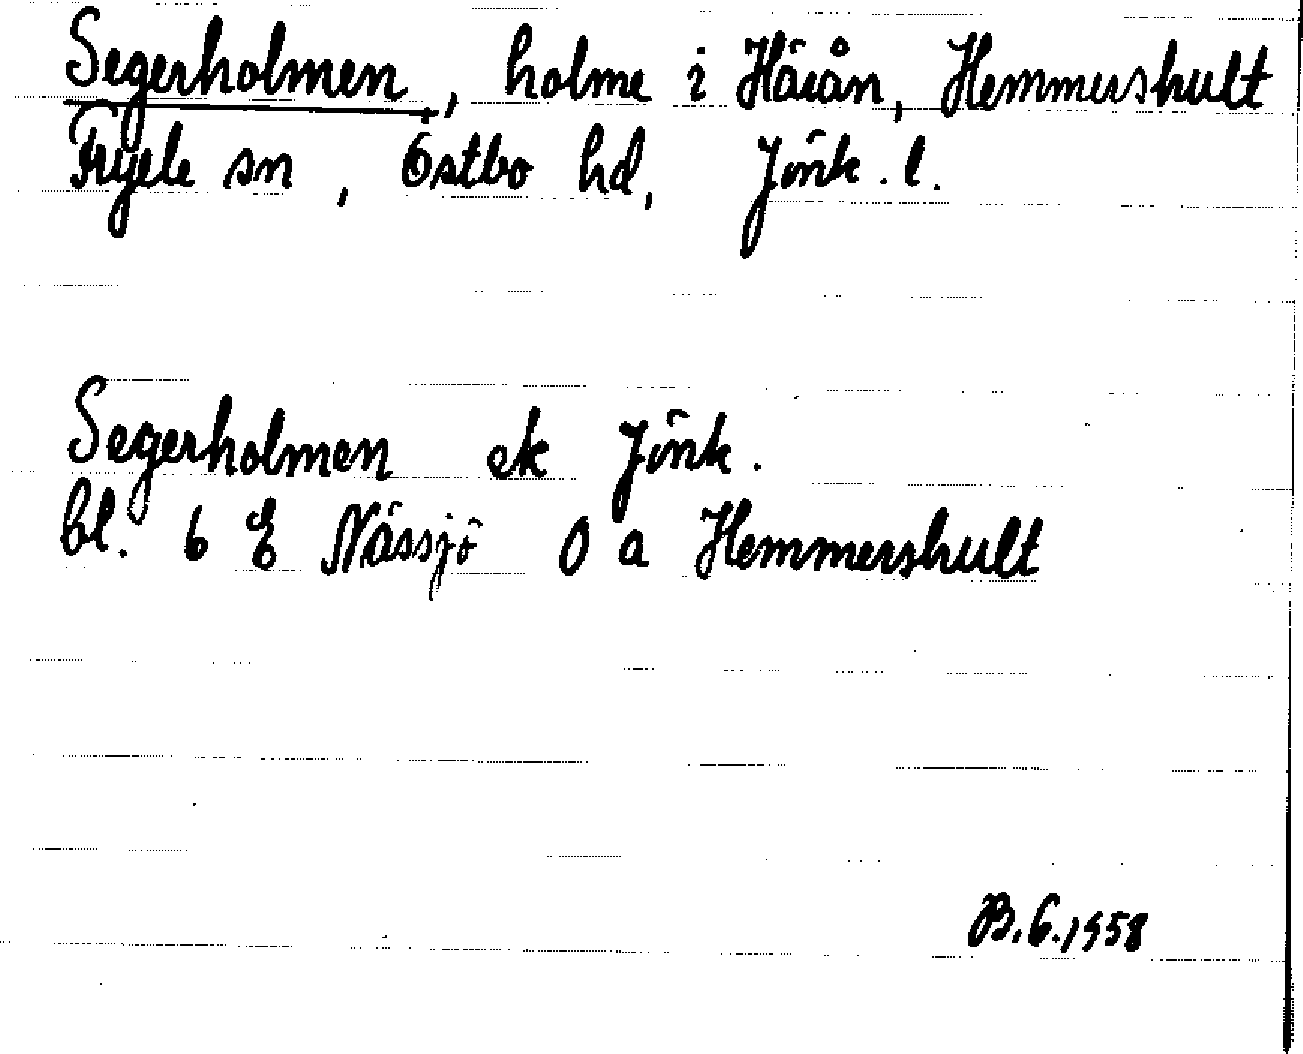 Segerholmen, holme i Härån, Hemmershult
Fryele sn, Östbo hd, Jönk. l.
Segerholmen ek Jönk.
bl. 6 E Nässjö 0 a Hemmershult
B.G.1958